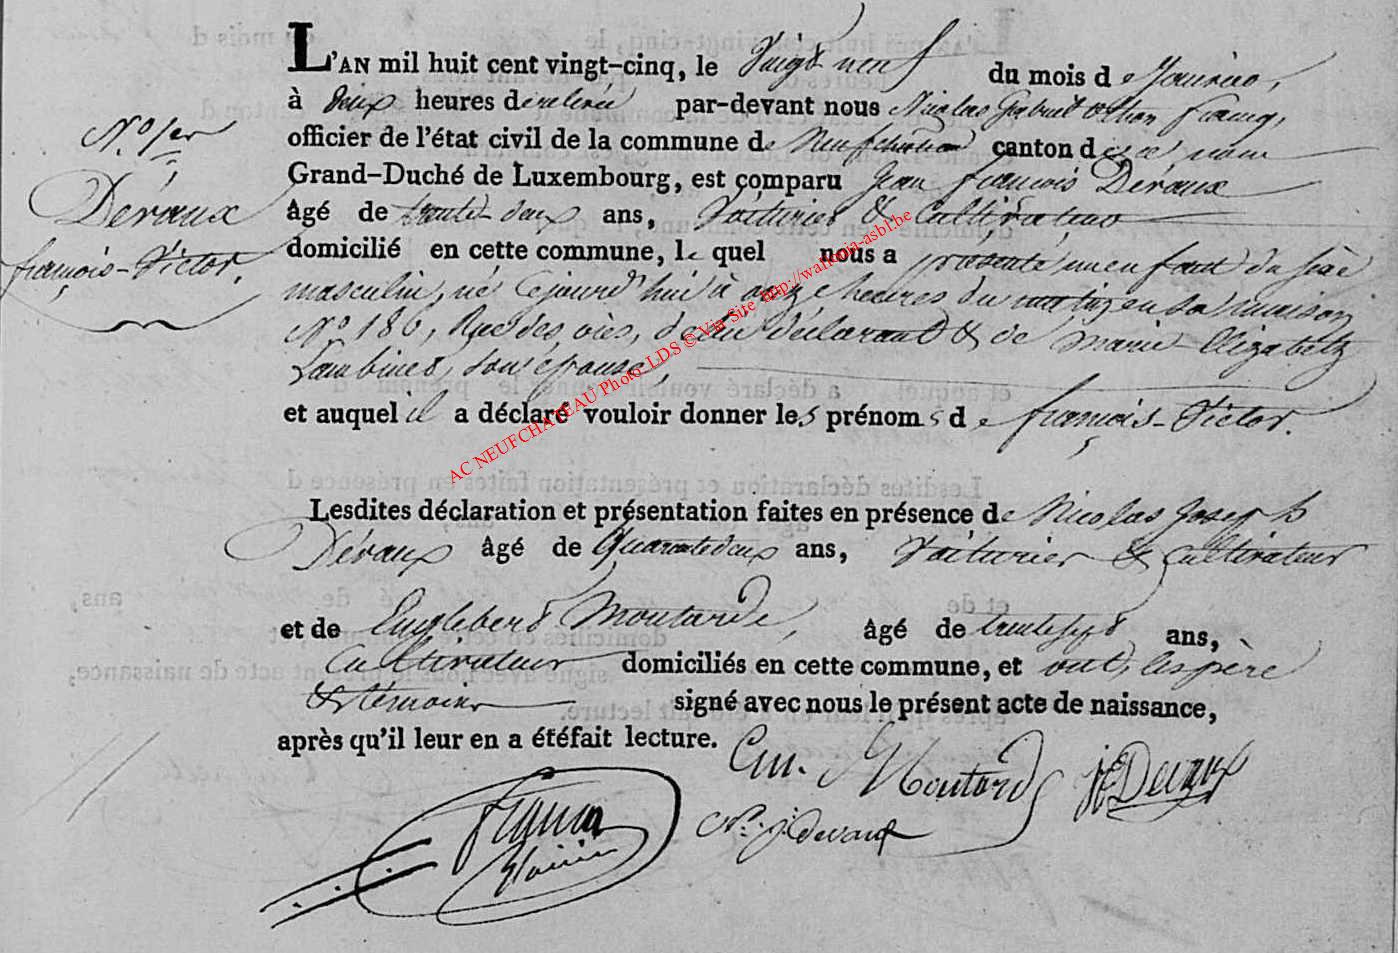 N.° 1er
Déraux
françois-Victor.
L'AN mil huit cent vingt-cinq, le Vingt neuf du mois de Janvier,
à deux heures de relevée par-devant nous Nicolas Gabriel
officier de l'état civil de la commune de Neufchateau canton de ce nom
Grand-Duché de Luxembourg, est comparu Jean françois Déraux
âgé de trente-deux ans, Voiturier & Cultivateur
domicilié en cette commune, le quel nous a présenté un enfant du sexe
masculin, né cejourd'hui à onze heures du matin, en sa maison
N.° 186, Rue des , de lui déclarant & de Marie Elizabeth
son épouse,
et auquel il a déclaré vouloir donner les prénoms de françois-Victor.
Lesdites déclaration et présentation faites en présence de Nicolas Joseph
Déraux âgé de Quarantedeux ans, Voiturier & Cultivateur
et de Englebert Moutarde, âgé de trentesept ans,
Cultivateur domiciliés en cette commune, et ont, les père
& témoins signé avec nous le présent acte de naissance,
après qu'il leur en a étéfait lecture.
En. Moutarde
AC NEUFCHATEAU Photo LDS © Via Site http://wallonia-asbl.be